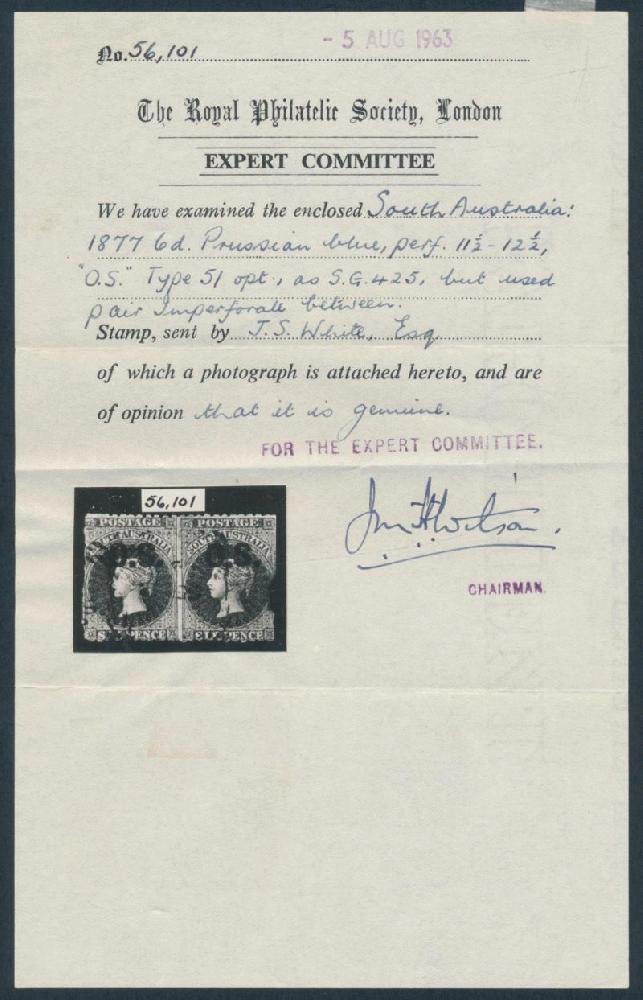 - 5 AUG 1963
No. 56,101
The Royal Philatelic Society, London
EXPERT COMMITTEE
We have examined the enclosed South Australia:
1877 6d. Prussian blue, perf. 11½-12½,
"O.S." Type 51 opt, as S.G. 425, but used
pair Imperforate between.
Stamp, sent by J.S. White, Esq
of which a photograph is attached hereto, and are
of opinion that it is genuine.
FOR THE EXPERT COMMITTEE.
CHAIRMAN.
56,101
POSTAGE POSTAGE
SOUTH AUSTRALIA SOUTH AUSTRALIA
O.S. O.S.
SIX PENCE SIX PENCE